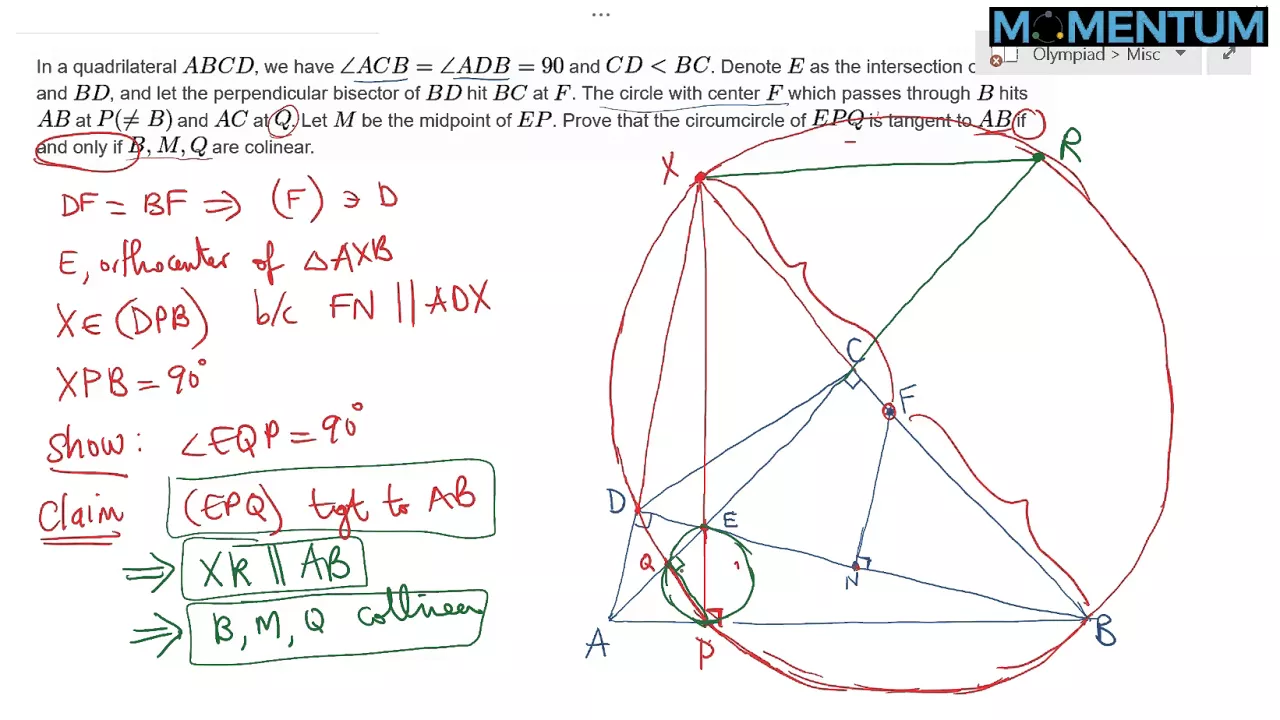 ...
MOMENTUM
Olympiad > Misc
In a quadrilateral ABCD, we have ∠ACB = ∠ADB = 90 and CD < BC. Denote E as the intersection
and BD, and let the perpendicular bisector of BD hit BC at F. The circle with center F which passes through B hits
AB at P(≠ B) and AC at Q. Let M be the midpoint of EP. Prove that the circumcircle of EPQ is tangent to AB if
and only if B, M, Q are colinear.
DF = BF ⇒ (F) ∋ D
E, orthocenter of △AXB
X ∈ (DPB) b/c FN || ADX
XPB = 90°
Show: ∠EQP = 90°
Claim (EPQ) tgt to AB
⇒ XR || AB
⇒ B, M, Q collinear
X
R
C
F
D
E
Q
N
A
P
B